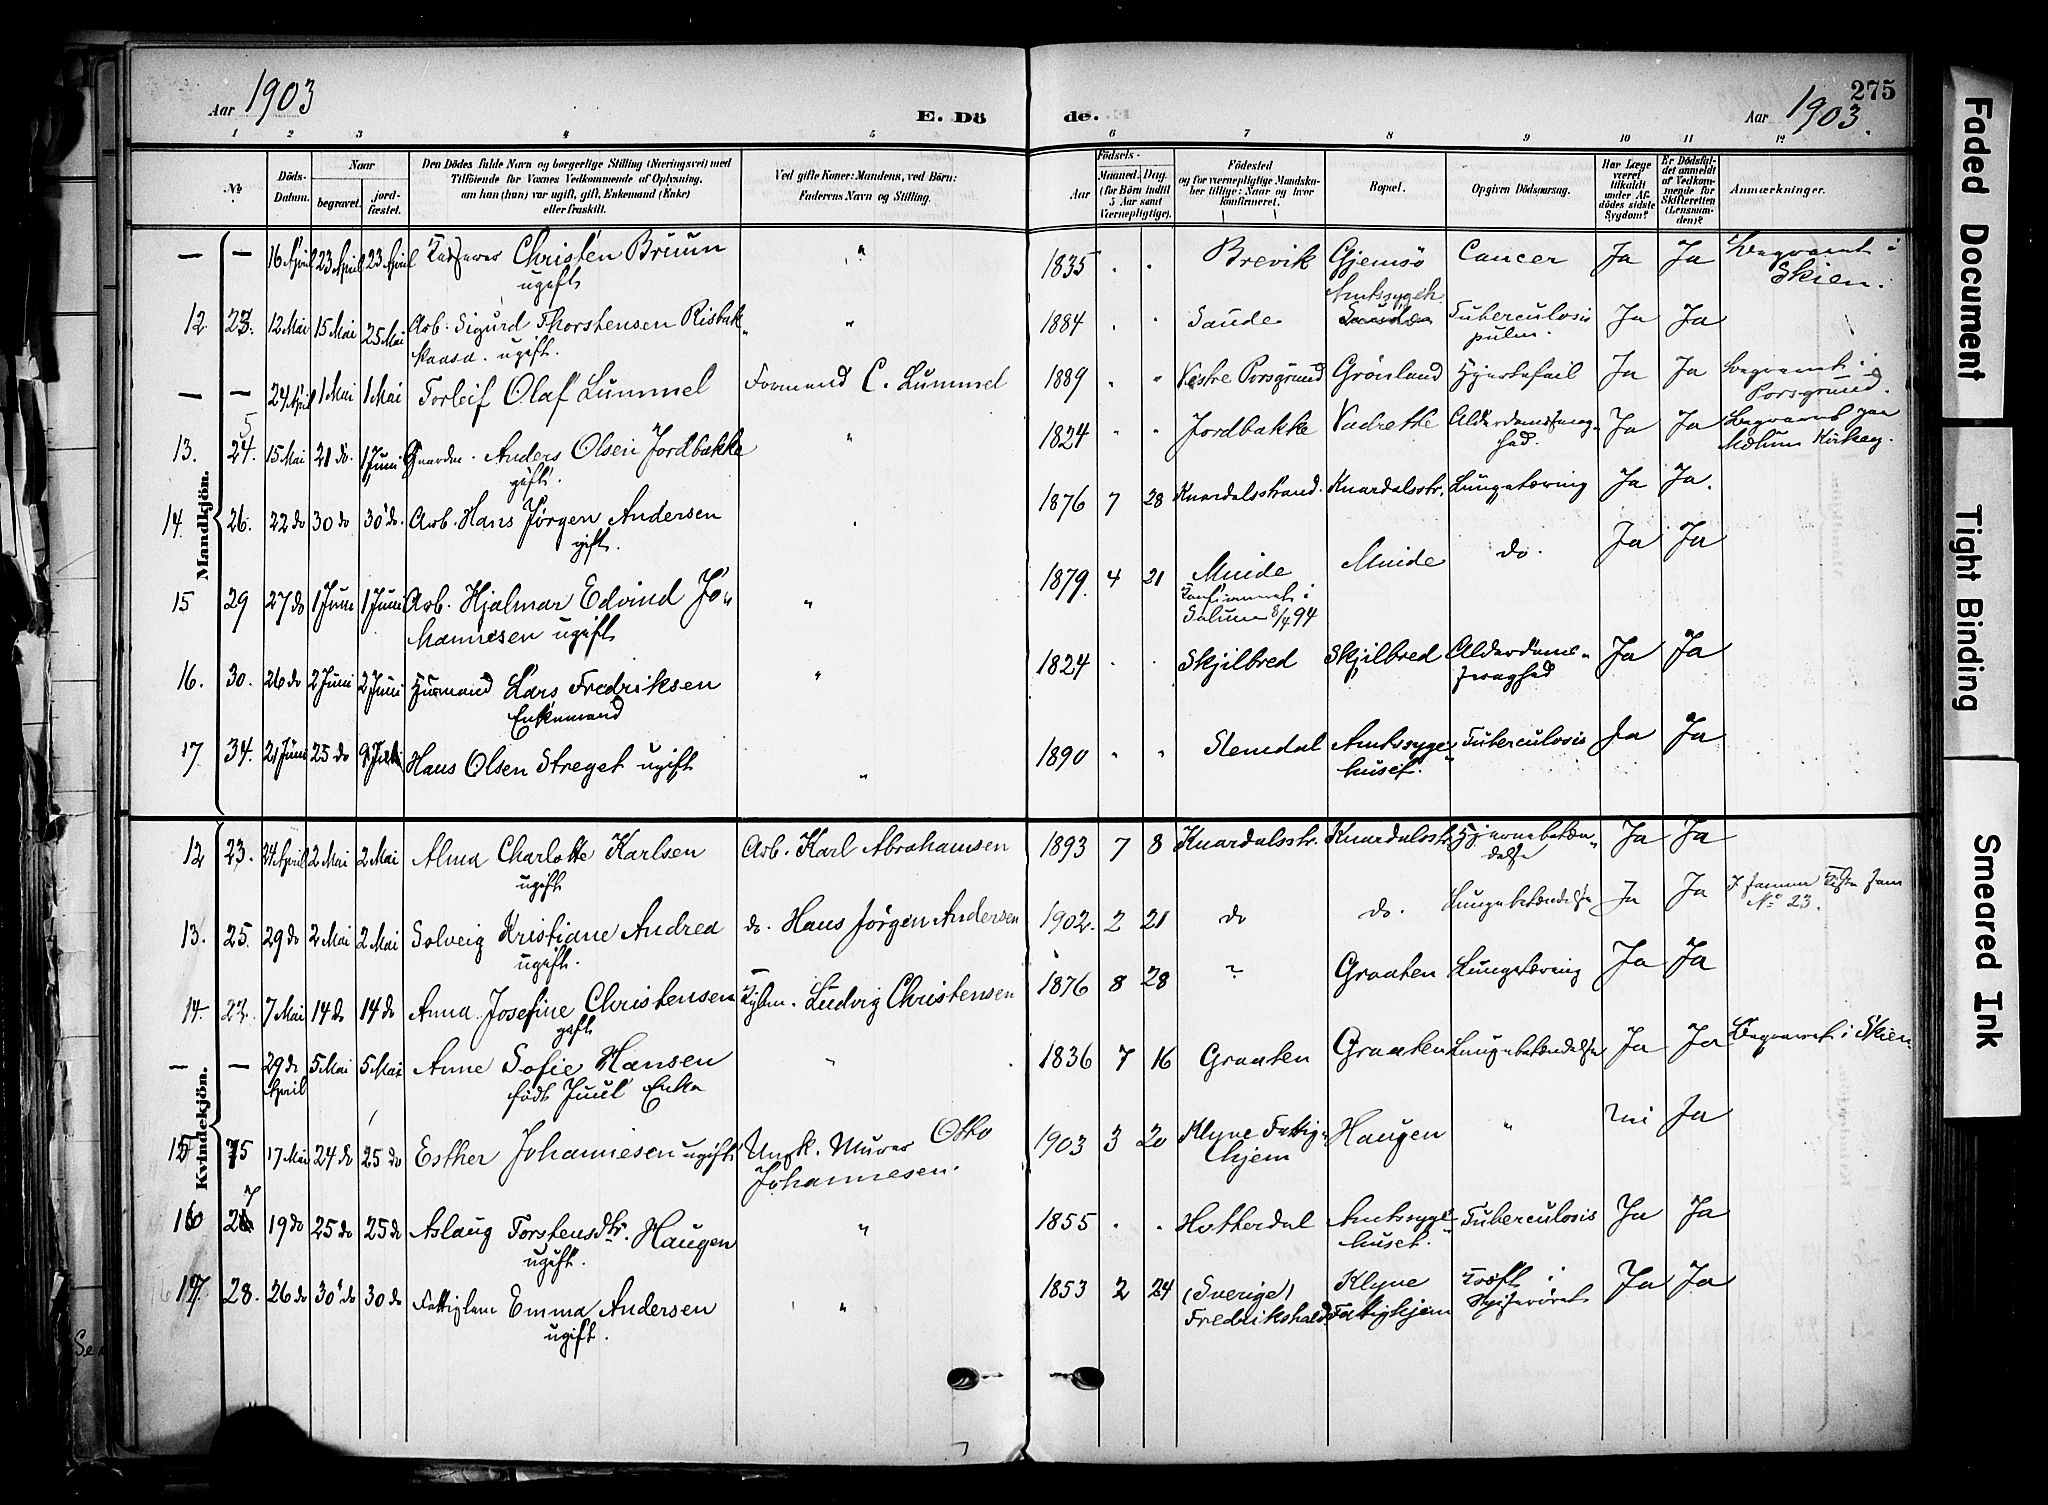 275
Aar 1903
E. Dö
de.
Aar 1903.
1 2 3 4 5 6 7 8 9 10 11 12
No
Döds-Datum.
Naar
begravet.
jord-fæstet.
Den Dödes fulde Navn og borgerlige Stilling (Næringsvei) med
Tilföiende for Voxnes Vedkommende af Oplysning,
om han (hun) var ugift, gift, Enkemand (Enke)
eller fraskilt.
Ved gifte Koner: Mandens, ved Börn:
Faderens Navn og Stilling.
Födsels-
Aar
Maaned. Dag.
(for Börn indtil
5 Aar samt
Værnepligtige).
Födested
og for værnepligtige Mandska-
ber tillige: Naar og hvor
konfirmeret.
Bopæl.
Opgiven Dödsaarsag.
Har Læge
været
tilkaldt
under Af-
dödes sidste
Sygdom?
Er Dödsfal-
det anmeldt
af Vedkom-
mende for
Skifteretten
(Lensman-
den)?
Anmærkninger.
Mandkjön.
— — 16 April 23 April 23 April Christen Bruun " 1835 . . Brevik Gjemsö Cancer Ja Ja Begravet i
ugift Skien.
Amtssygeh.
12 23. 12 Mai 15 Mai 25 Mai Arb. Sigurd Thorstensen Risbak- " 1884 . . Saude Tuberculosis Ja Ja
kaasa. ugift. pulm.
— — 24 April 1 Mai 1 Mai Torleif Olaf Lummel Formand C. Lummel 1889 . " Vestre Porsgrund Grönland Hjertefeil Ja Ja Begravet i
Porsgrund.
13. 24. 15 Mai 21 do. 1 Juni Gaardm. Anders Olsen Jordbakke " 1824 . . Jordbakke Vadrette Alderdomssvag- Ja Ja Begravet paa
gift. hed. Mælum Kirkeg.
14 26. 22 do 30 do 30 do. Arb. Hans Jörgen Andersen 1876 7 28 Knardalsstrand. Knardalsstr. Lungetæring Ja Ja.
gift.
15 29 27 do 1 Juni 1 Juni Arb. Hjalmar Edvind Jo- " 1879. 4 21 Muide Muide do. Ja Ja
hannesen ugift Konfirmeret i
Solum 8/4 94
16. 30. 26 do 2 Juni 2 Juni Husmand Lars Fredriksen " 1824 . . Skjilbred Skjilbred Alderdoms- Ja Ja
Enkemand svaghed
17 34. 21 Juni 25 do 9 Juli Hans Olsen Streget ugift " 1890 . " Slemdal Amtssyge- Tuberculosis Ja Ja
huset.
Kvindekjön.
12 23. 24 April 2 Mai 2 Mai Alma Charlotte Karlsen Arb. Karl Abrahamsen 1893 7 8 Knardalsstr. Knardalsstr. Hjernebetæn- Ja Ja
ugift delse
13. 25. 29 do 2 Mai 2 Mai Solveig Kristiane Andrea do. Hans Jörgen Andersen 1902. 2 21 do do. Lungebetændelse Ja Ja I samme Kiste som
ugift. No 23.
14. 23. 7 Mai 14 do 14 do Anna Josefine Christensen Ludvig Christensen 1876 8 28 ? Graaten Lungetæring Ja Ja
gift
— — 29 do April 5 Mai 5 Mai Anne Sofie Hansen " 1836 7 16 Graaten Graaten Lungebetændelse Ja Ja Begravet i Skien.
födt Juul Enke
15 17 Mai 24 do 25 do Esther Johannesen ugift Ungk. Murer Otto 1903 3 20 Klyve Fattig- Haugen " nei Ja
Johannesen. hjem
16 27 19 do 25 do 25 do Aslaug Torstensdtr. Haugen " 1855 . . Hitterdal Amtssyge- Tuberculosis Ja Ja
ugift. huset.
17 28. 26 do 30 do 30 do Fattiglem Emma Andersen " 1853 2 24 (Sverige) Klyve Kræft i Ja Ja
ugift. Fredrikshald Fattighjem Spiserøret
Faded Document
Tight Binding
Smeared Ink